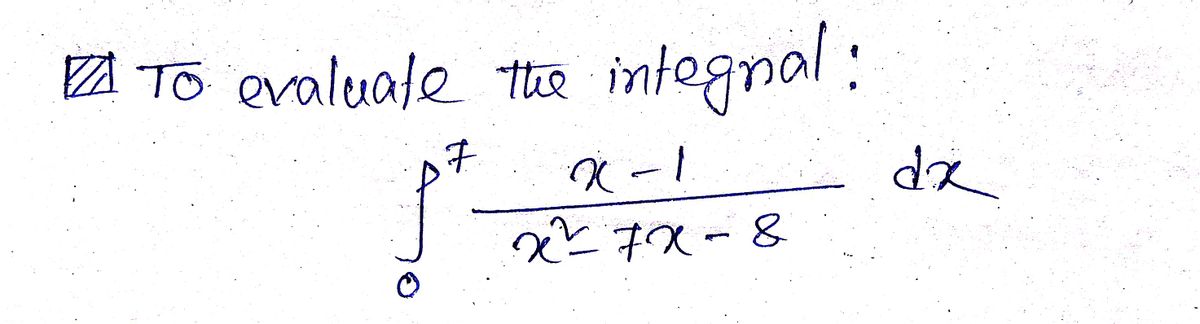 To evaluate the integral:
∫₀⁷ (x - 1)/(x² - 7x - 8) dx